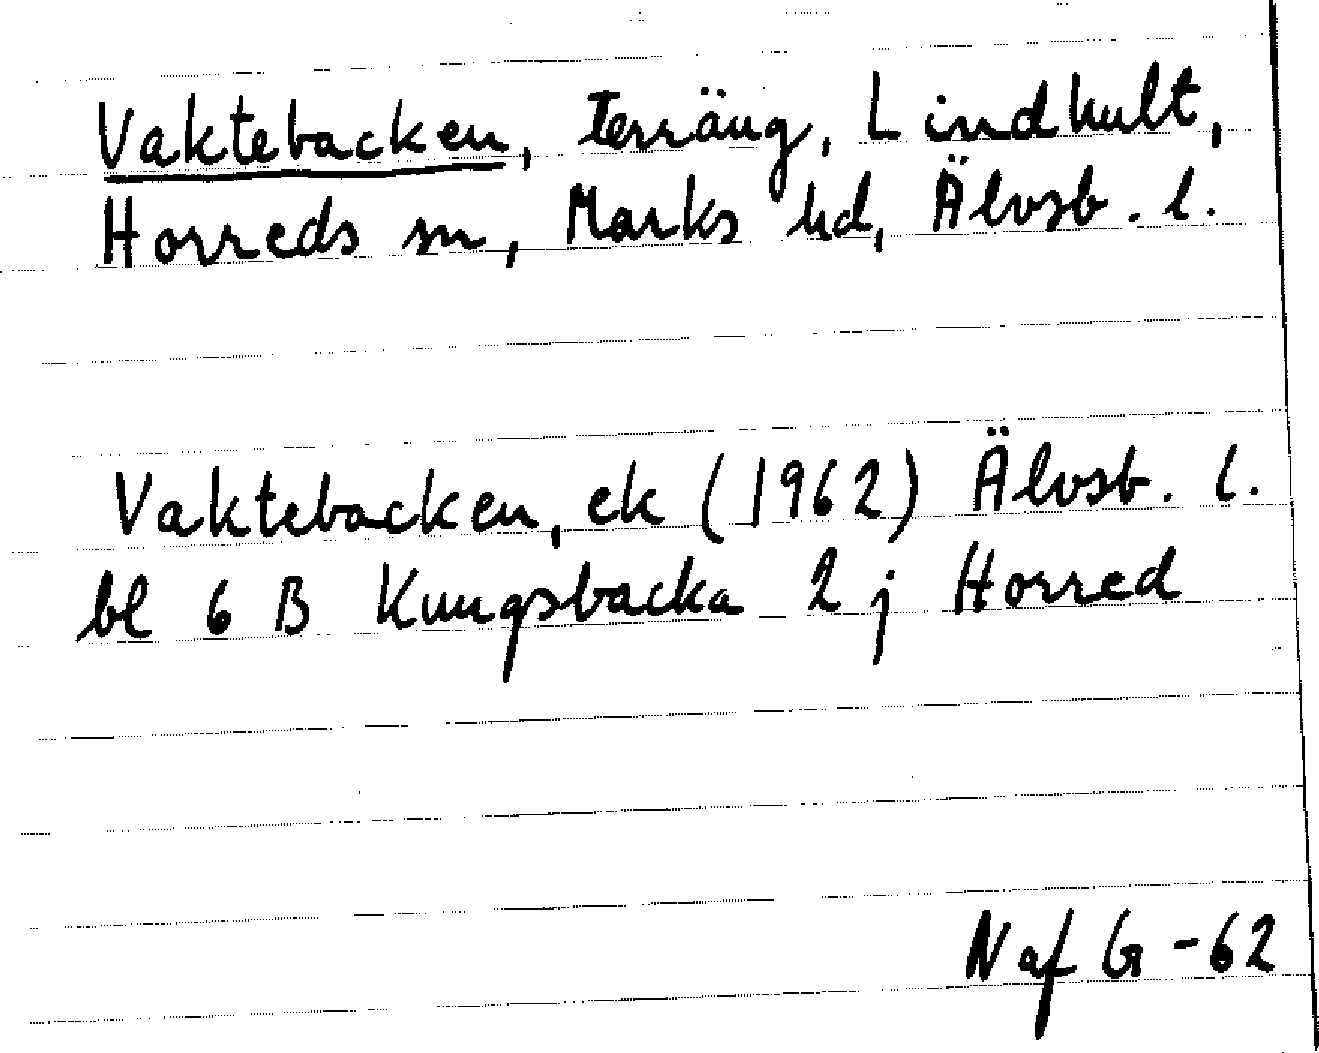 Vaktebacken, Terräng, Lindhult,
Horreds sn, Marks hd, Älvsb. l.
Vaktebacken, ek (1962) Älvsb. l.
bl 6 B Kungsbacka 2 j Horred
N af G -62